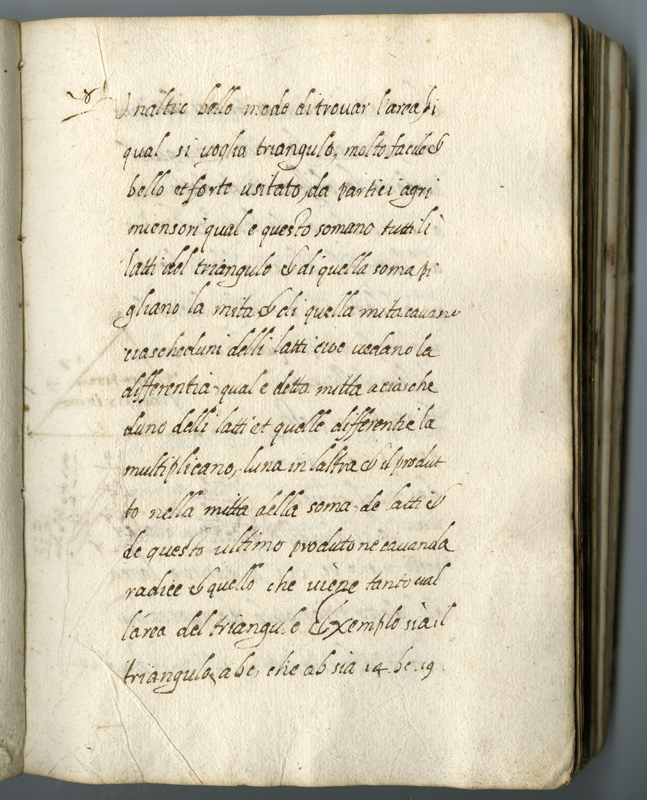 Unaltro bello modo di trovar l'area di
qual si voglia triangulo, molto facile &
bello et forte usitato, da partici agri
miensori qual e questo somano tutti li
latti del triangulo & di quella soma pi
gliano la mita & di quella mita cavano
ciascheduni delli latti cioe vedano la
differentia qual e detta mitta a ciasche
duno delli latti et quelle differentie la
multiplicano, luna in laltra & il produt
to nella mitta della soma de latti &
de questo ultimo produto ne cavan da
radice & quello che viene tanto val
l'area del triangulo Exemplo sia il
triangulo, abc, che ab sia 14. bc. 19